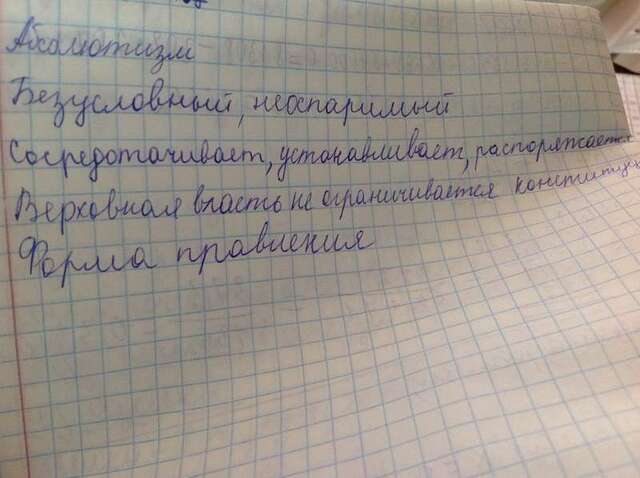 Абсолютизм
Безусловный, неоспаримый
Сосредотачивает, устанавливает, распоряжается
Верховная власть не ограничивается конституц
Форма правления